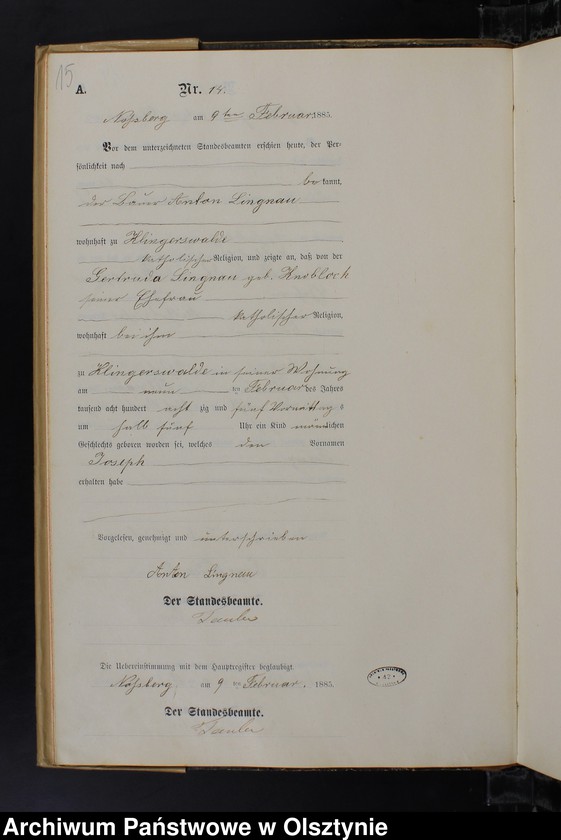 15
A. Nr. 14.
Noßberg am 9ten Februar 1885.
Vor dem unterzeichneten Standesbeamten erschien heute, der Per-
sönlichkeit nach
be kannt,
der Bauer Anton Lingnau
wohnhaft zu Klingerswalde
katholischer Religion, und zeigte an, daß von der
Gertruda Lingnau geb. Knobloch
seiner Ehefrau
katholischer Religion,
wohnhaft bei ihm
zu Klingerswalde in seiner Wohnung
am neun ten Februar des Jahres
tausend acht hundert acht zig und fünf Vormittags
um halb fünf Uhr ein Kind männlichen
Geschlechts geboren worden sei, welches den Vornamen
Joseph
erhalten habe
Vorgelesen, genehmigt und unterschrieben
Anton Lingnau
Der Standesbeamte.
Die Uebereinstimmung mit dem Hauptregister beglaubigt
Noßberg, am 9 ten Februar. 1885.
Der Standesbeamte.
Archiwum Państwowe w Olsztynie